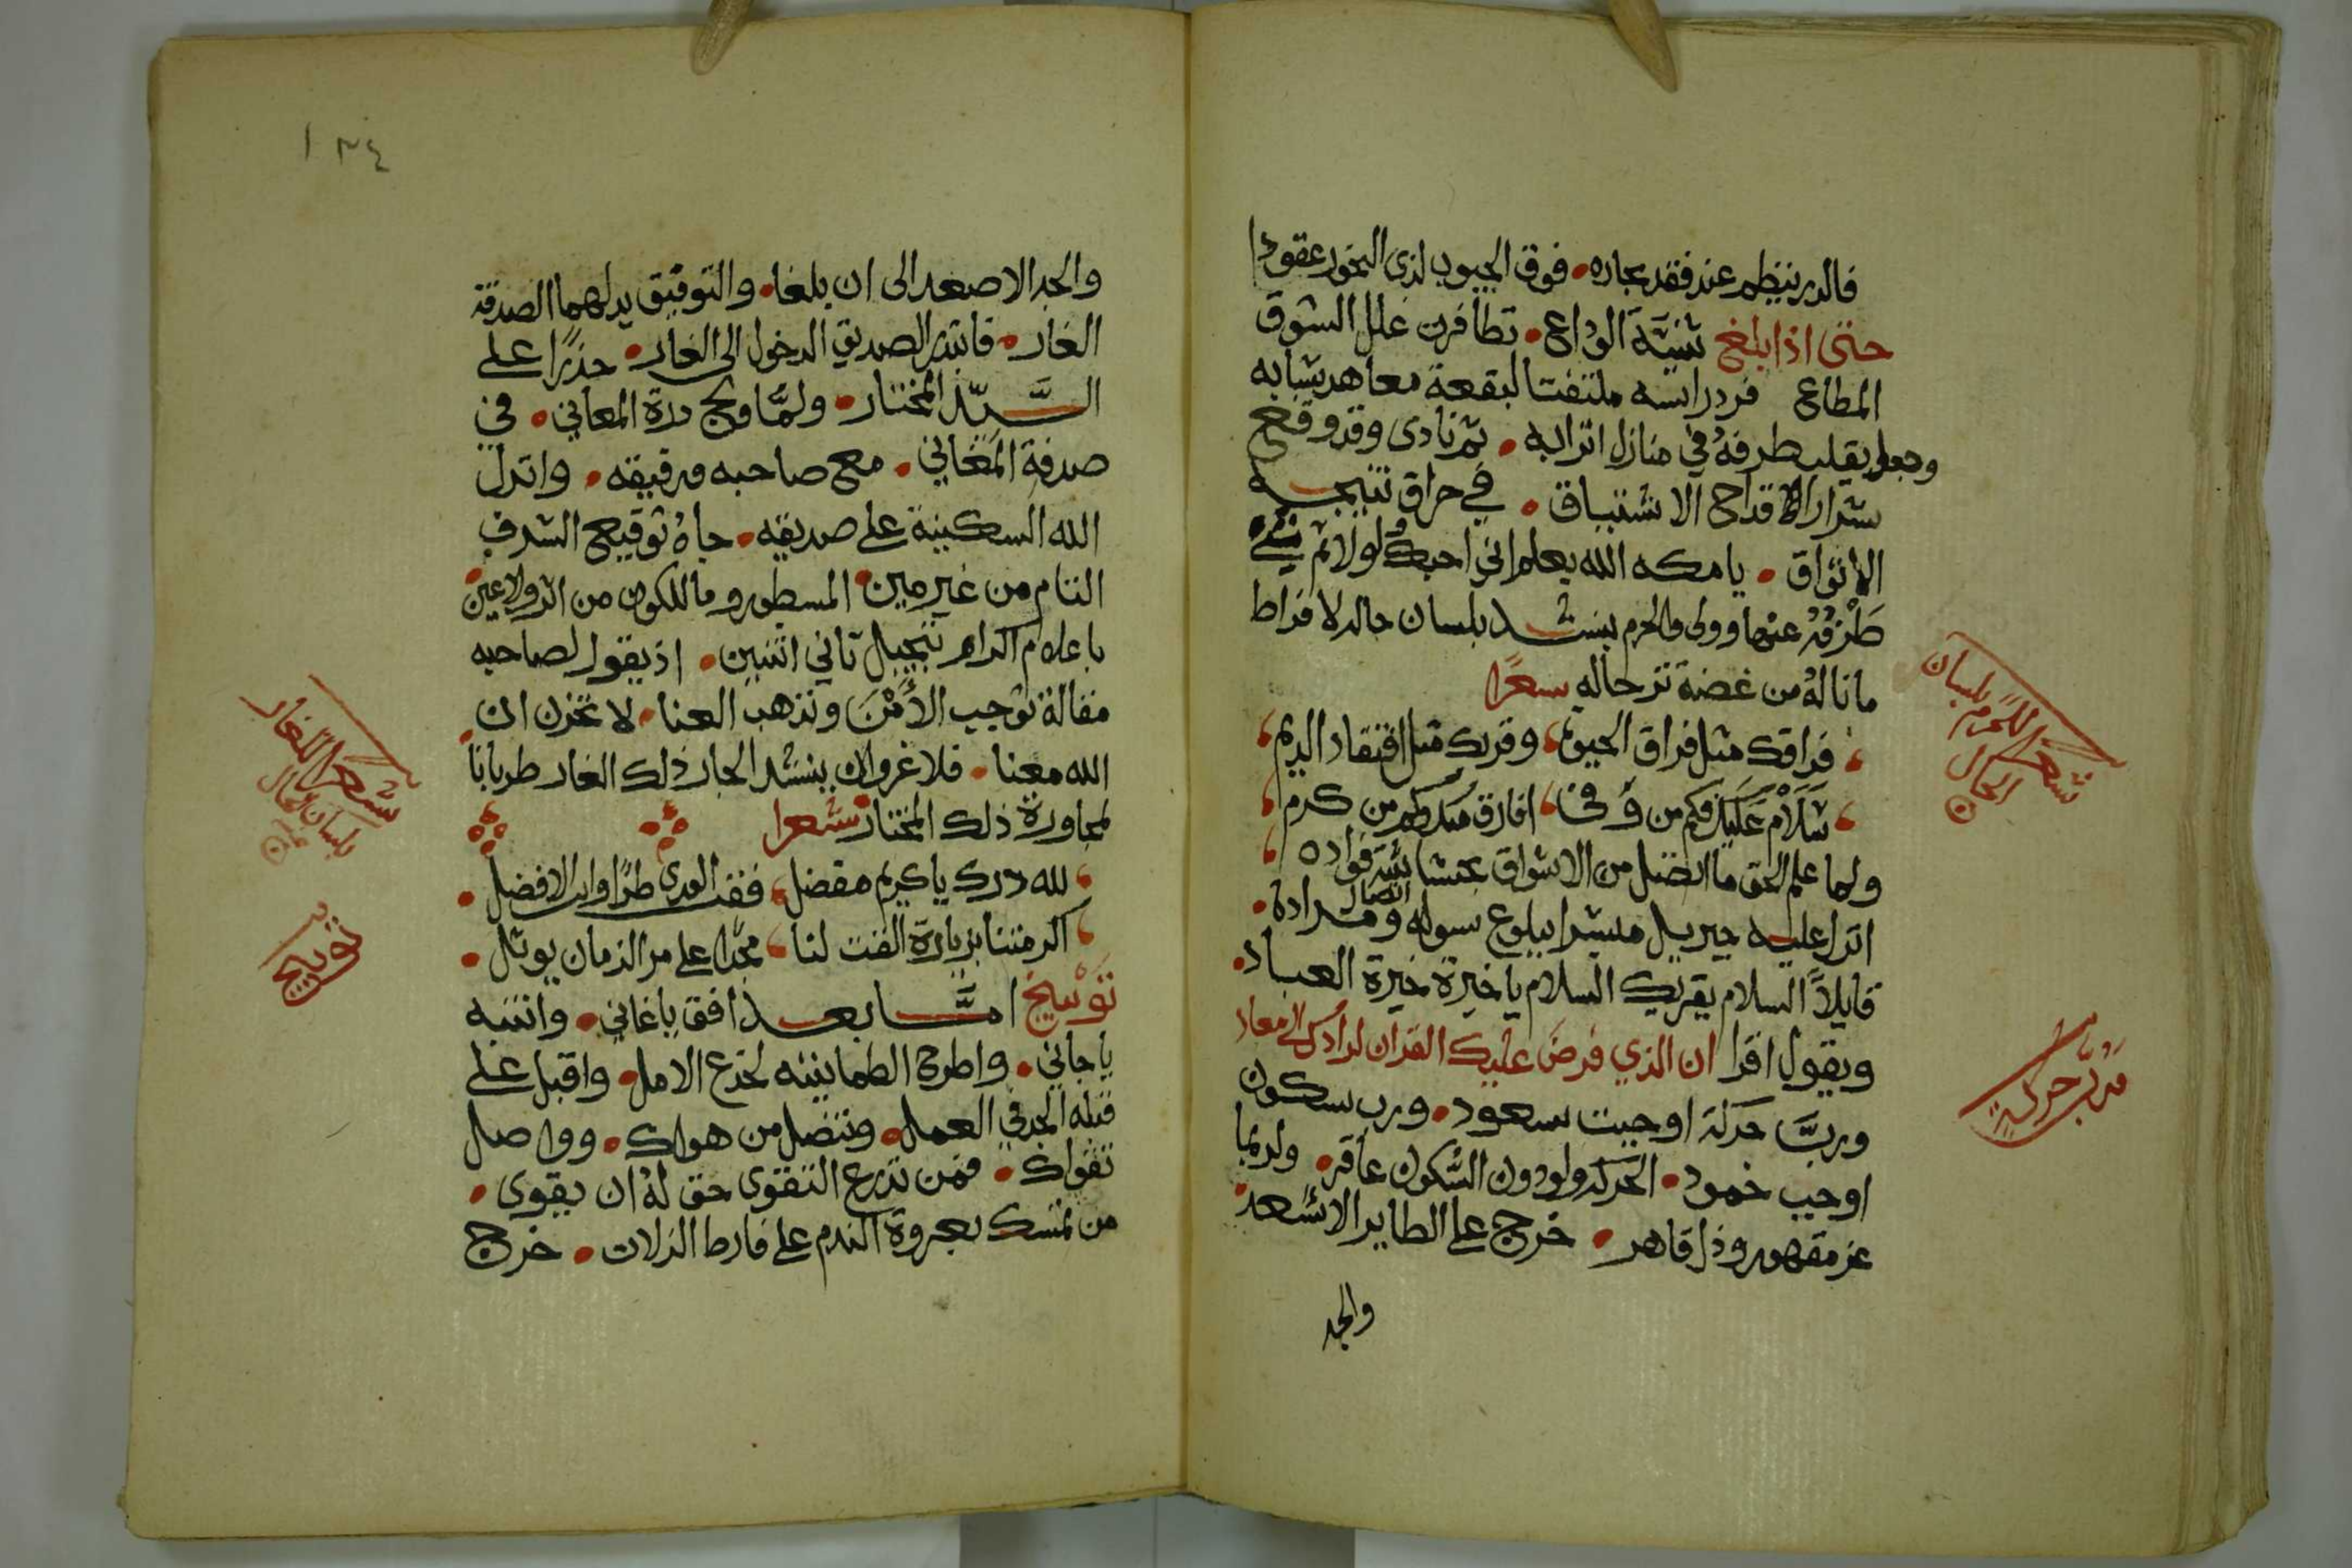 فالدر ينظم عند فقد بحاره • فوق الجيوب لذي النحور عقودا
حتى اذا بلغ ثنية الوداع • تظافرت علل الشوق
المطاع فرد راسه ملتفتا لبقعة معاهد شبابه
وجعل يقلب طرفه في منازل اترابه • ثم نادى وقد وقع
شرار اقداح الاشتياق • في حراق
الاتواق • يا مكه الله يعلم اني احبك لولا ثم
طرفه عنها وولى والحرم ينشد بلسان حاله لافراط
ما ناله من غصة ترحاله سعرا
فراقك مثل فراق الحيوة، وقربك مثل افتقاد الديم،
سلام عليك فكم من وفا، افارق منك وكم من كرم،
ولما علم الحق ما اتصل من الاشواق بحشاشة فواده
انزل عليه جبريل مبشرا ببلوغ سوله واتصال مراده •
قايلا السلام يقريك السلام يا خيرة خيرة العباد •
ويقول اقرا ان الذي فرض عليك القران لرادك الى معاد
ورب حركة اوجبت سعود • ورب سكون
اوجب خمود • الحركة ولود والسكون عاقر • ولربما
عز مقهور وذل قاهر • خرج على الطاير الاسعد •
والجد
شعر للحرم بلسان
الحال
رب حركة
١٣٤
والجد الاصعد الى ان بلغا • والتوفيق يدلهما لصدفة
الغار • فابتدر الصديق الدخول الى الغار • حذرا على
السيد المختار • ولما ولج درة المعاني • في
صدفة المغاني • مع صاحبه ورفيقه • وانزل
الله السكينة على صديقه • جاه توقيع الشرف
التام من غير مين • المسطور وما للكون من اثر ولا عين •
باعلام اكرام تبجيل ثاني اثنين • اذ يقول لصاحبه
مقالة توجب الأمن وتذهب العنا • لا تحزن ان
الله معنا • فلا غرو ان ينشد الحار ذلك الغار طربا بالمجاورة
لمجاورة ذلك المختار شعرا
، لله درك يا كريم مفضل، فقت الورى طرا وانت الافضل •
، اكرمتنا بزيارة القت لنا، مجدا على مر الزمان يوثل •
توبيخ امَّا بعد افق يا غاني • وانتبه
يا جاني • واطرح الطمانينه لخدع الامل • واقبل على
قبلة الجد في العمل • وتنصل من هواك • وواصل
تقواك • فمن تدرع التقوى حق له ان يقوى •
من تمسك بعروة الندم على فارط الزلات • خرج
شعر للغار
بلسان الحال
توبيخ